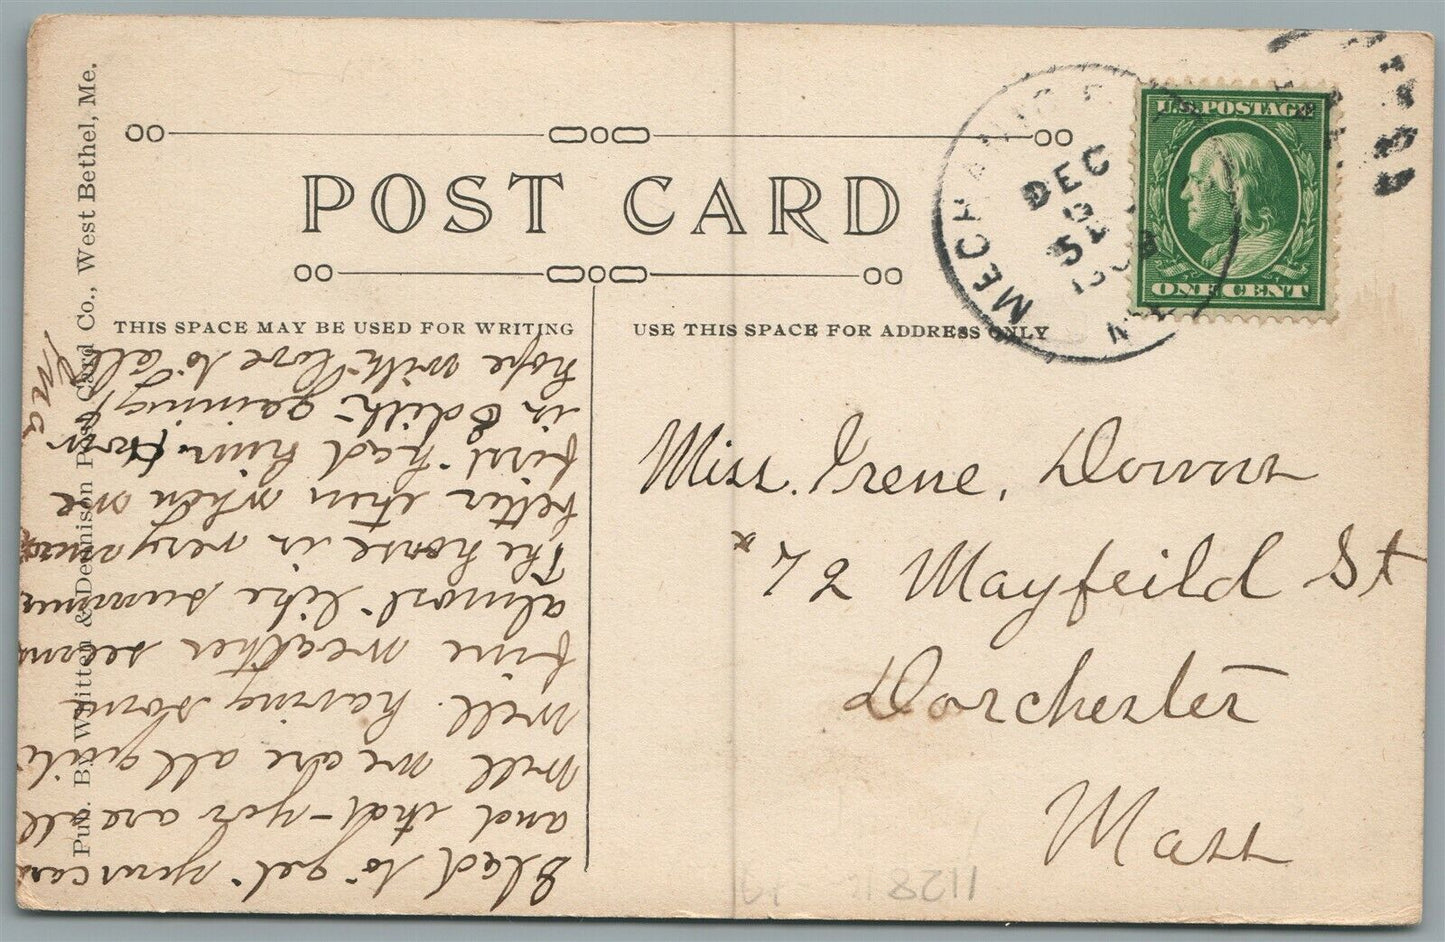 Pub. By Whitten & Dennison Post Card Co., West Bethel, Me.
POST CARD
THIS SPACE MAY BE USED FOR WRITING
USE THIS SPACE FOR ADDRESS ONLY
MECHANIC F
DEC
1908
U.S. POSTAGE
ONE CENT
Miss. Irene, Downs
72 Mayfeild St
Dorchester
Mass
11281
Glad to get your card
and that you are all
well we are all quite
well. having some
fine weather seems
almost like summer
The horse is very much
better than when we
first had him. how
is Edith gaining I
hope with love to all